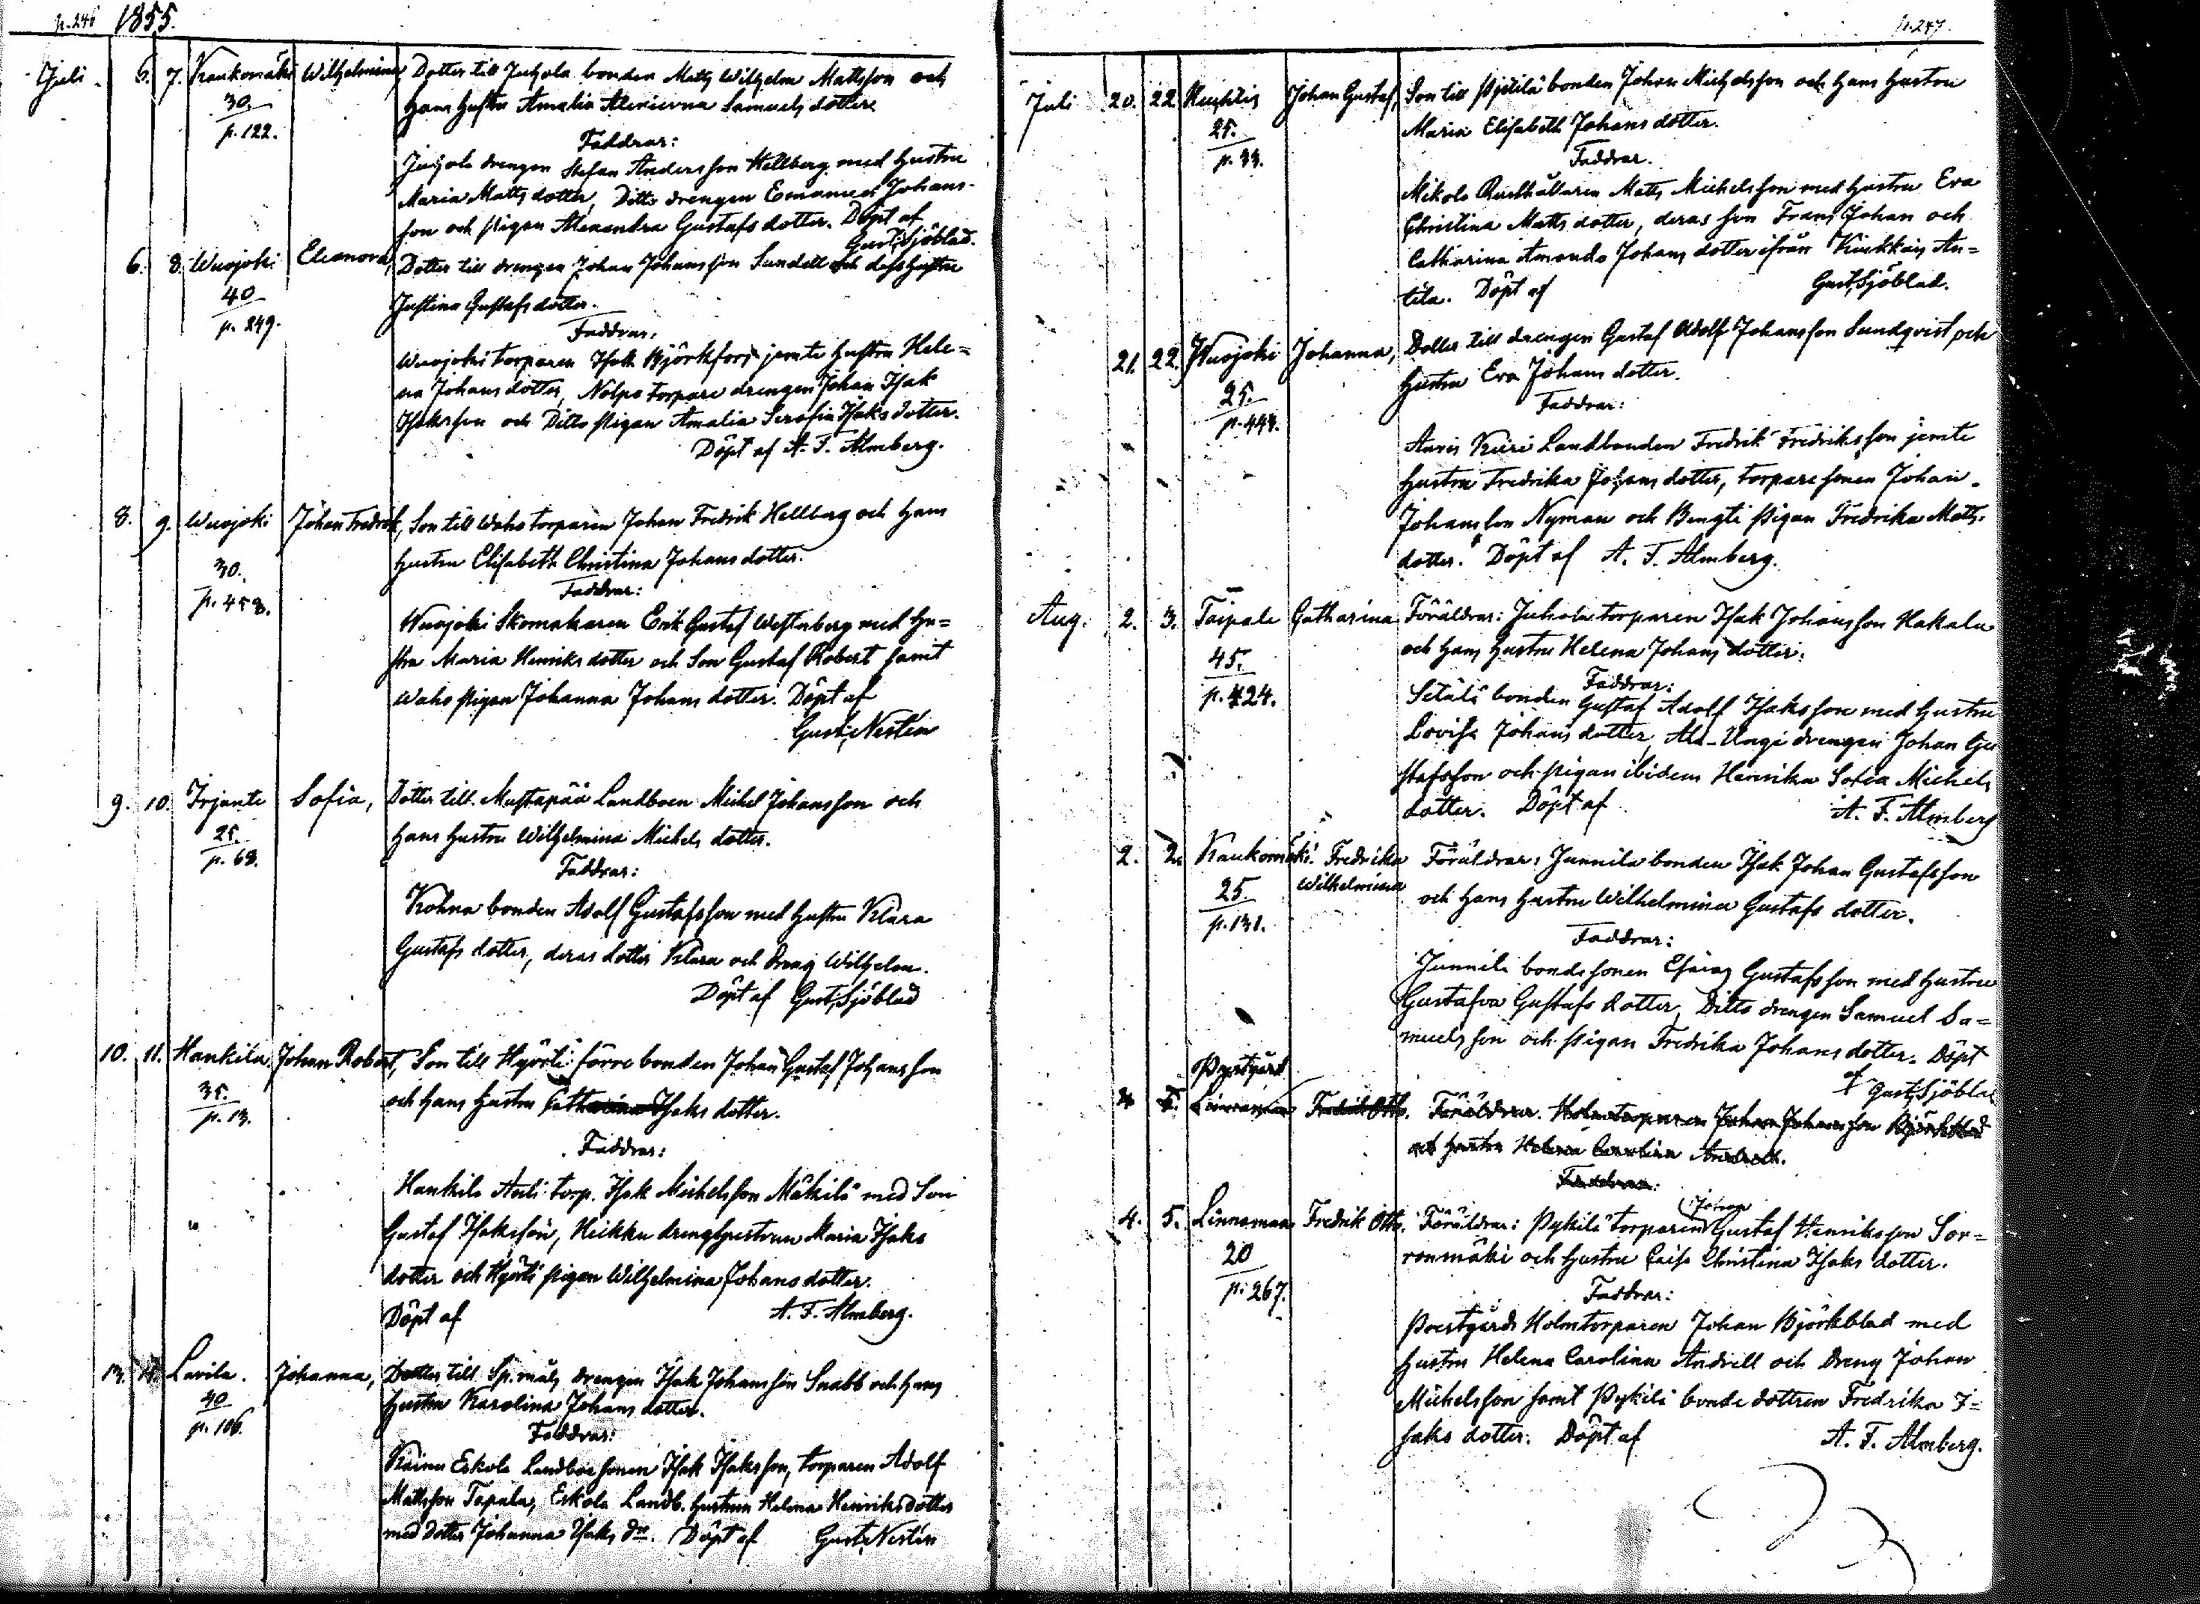 p. 246 1855.
Juli. 6. 7. Kaukomäki Wilhelmina, Dotter till Juhola bonden Matts Wilhelm Mattsson och
30. hans hustru Amalia Samuels dotter
p. 122.
Faddrar:
Juhola drengen Stefan Andersson Hellberg med hustru
Maria Matts dotter, Ditto drengen Emanuel Johans-
son och pigan Alexandra Gustafs dotter. Döpt af
Gust. Sjöblad.
6. 8. Wuojoki Eleonora, Dotter till drengen Johan Johansson Sundell och dess hustru
40 Justina Gustafs dotter.
p. 249.
Faddrar.
Wuojoki torparen Isak Björkfors jemte hustru Hele=
na Johans dotter, Nolpo torpare drengen Johan Isak
Isaksson och Ditto pigan Amalia Serafia Isaks dotter.
Döpt af A. F. Almberg.
8. 9. Wuojoki Johan Fredrik, Son till Waho torparen Johan Fredrik Hellberg och hans
30. hustru Elisabeth Christina Johans dotter.
p. 458.
Faddrar:
Wuojoki Skomakaren Erik Gustaf Westerberg med hu=
stru Maria Henriks dotter och Son Gustaf Robert samt
Waho pigan Johanna Johans dotter. Döpt af
Gust. Nestén
9. 10. Irjante Sofia, Dotter till Mustapää Landboen Michel Johansson och
25. hans hustru Wilhelmina Michels dotter.
p. 68.
Faddrar:
Kohna bonden Adolf Gustafsson med hustru Klara
Gustafs dotter, deras dotter Klara och dreng Wilhelm.
Döpt af Gust. Sjöblad
10. 11. Hankila Johan Robert, Son till Hyörti förre bonden Johan Gustaf Johansson
35. och hans hustru Catharina Isaks dotter.
p. 13.
Faddrar:
Hankila Antti torp. Isak Michelsson Mäkilä med Son
Gustaf Isaksson, Heikku dreng hustrun Maria Isaks
dotter och Hyörti pigan Wilhelmina Johans dotter.
Döpt af A. F. Almberg.
13. Lavila. Johanna, Dotter till Sp.måls drengen Isak Johansson Snabb och hans
40 hustru Karolina Johans dotter.
p. 106.
Faddrar:
Kainu Eskola Landboe sonen Isak Isaksson, torparen Adolf
Mattsson Tapala, Eskola Landb. hustrun Helena Henriks dotter
med dotter Johanna Isaks dr. Döpt af Gust. Nestén
p. 247.
Juli 20. 22. Huhtis Johan Gustaf, Son till Pjitilä bonden Johan Michelsson och hans hustru
25. Maria Elisabeth Johans dotter.
p. 33.
Faddrar.
Mikola Rusthållaren Matts Michelsson med hustru Eva
Christina Matts dotter, deras son Frans Johan och
Catharina Amanda Johans dotter ifrån Kiukkais An=
tila. Döpt af Gust. Sjöblad.
21. 22. Wuojoki Johanna, Dotter till drengen Gustaf Adolf Johansson Sundqvist och
25. hustru Eva Johans dotter.
p. 444.
Faddrar:
Anvis Kiiri Landbonden Fredrik Fredriksson jemte
hustru Fredrika Johans dotter, torpare sonen Johan
Johansson Nyman och Bengti pigan Fredrika Matts-
dotter. Döpt af A. F. Almberg.
Aug. 2. 3. Taipale Catharina Föräldrar: Juhola torparen Isak Johansson Hakala
45. och hans hustru Helena Johans dotter.
p. 424.
Faddrar:
Setälä bonden Gustaf Adolf Isaksson med hustru
Lovisa Johans dotter, Ala-Ungi drengen Johan Gu
stafsson och pigan ibidem Henrika Sofia Michels
dotter. Döpt af A. F. Almberg
2. 2. Kaukomäki. Fredrika Föräldrar: Junnila bonden Isak Johan Gustafsson
25 Wilhelmina och hans hustru Wilhelmina Gustafs dotter.
p. 131.
Faddrar:
Junnila bondesonen Esaias Gustafsson med hustru
Gustafva Gustafs dotter, Ditto drengen Samuel Sa=
muelsson och pigan Fredrika Johans dotter. Döpt
af Gust. Sjöblad
Prestgård
4. 5. Linnamaa Fredrik Otto. Föräldrar. Holmtorparen Johan Johansson Björkblad
och hustru Helena Carolina Andrell.
Faddrar:
4. 5. Linnamaa Fredrik Otto. Föräldrar: Pykilä torparen Johan Gustaf Henriksson Sor=
20 ronmäki och hustru Caisa Christina Isaks dotter.
p. 267.
Faddrar:
Prestgårds Holmtorparen Johan Björkblad med
hustru Helena Carolina Andrell och Dreng Johan
Michelsson samt Pykilä bonde dottren Fredrika I=
saks dotter. Döpt af A. F. Almberg.